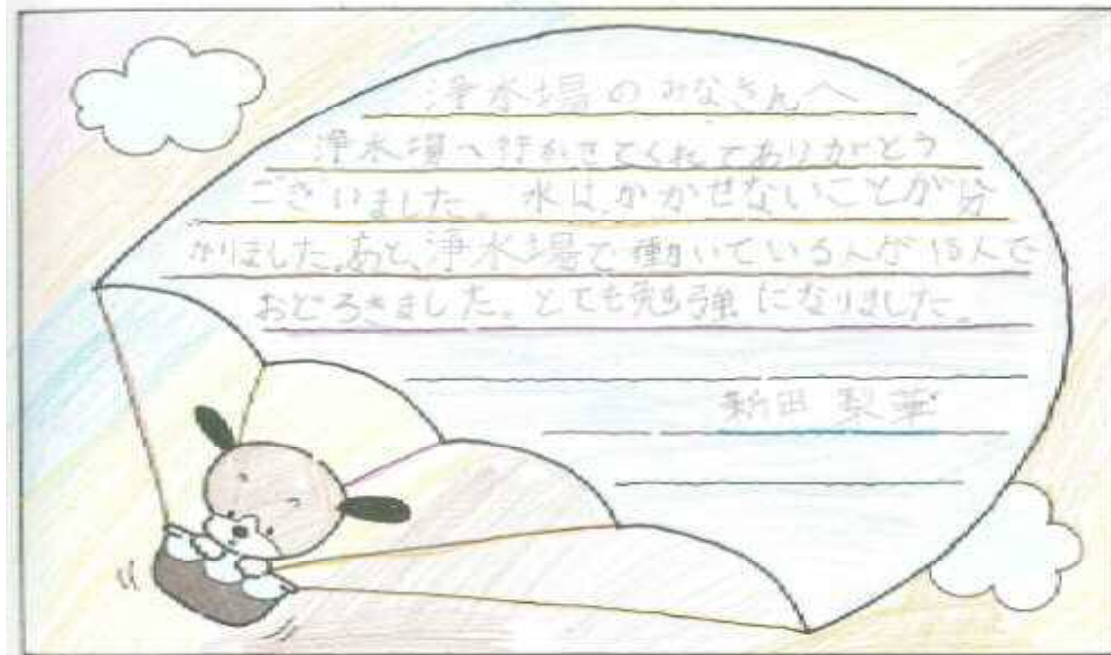 浄水場のみなさんへ
浄水場へ行かせてくれてありがとう
ございました。水は、かかせないことが分
かりました。あと、浄水場で働いている人が18人で
おどろきました。とても勉強になりました。
新田 梨華